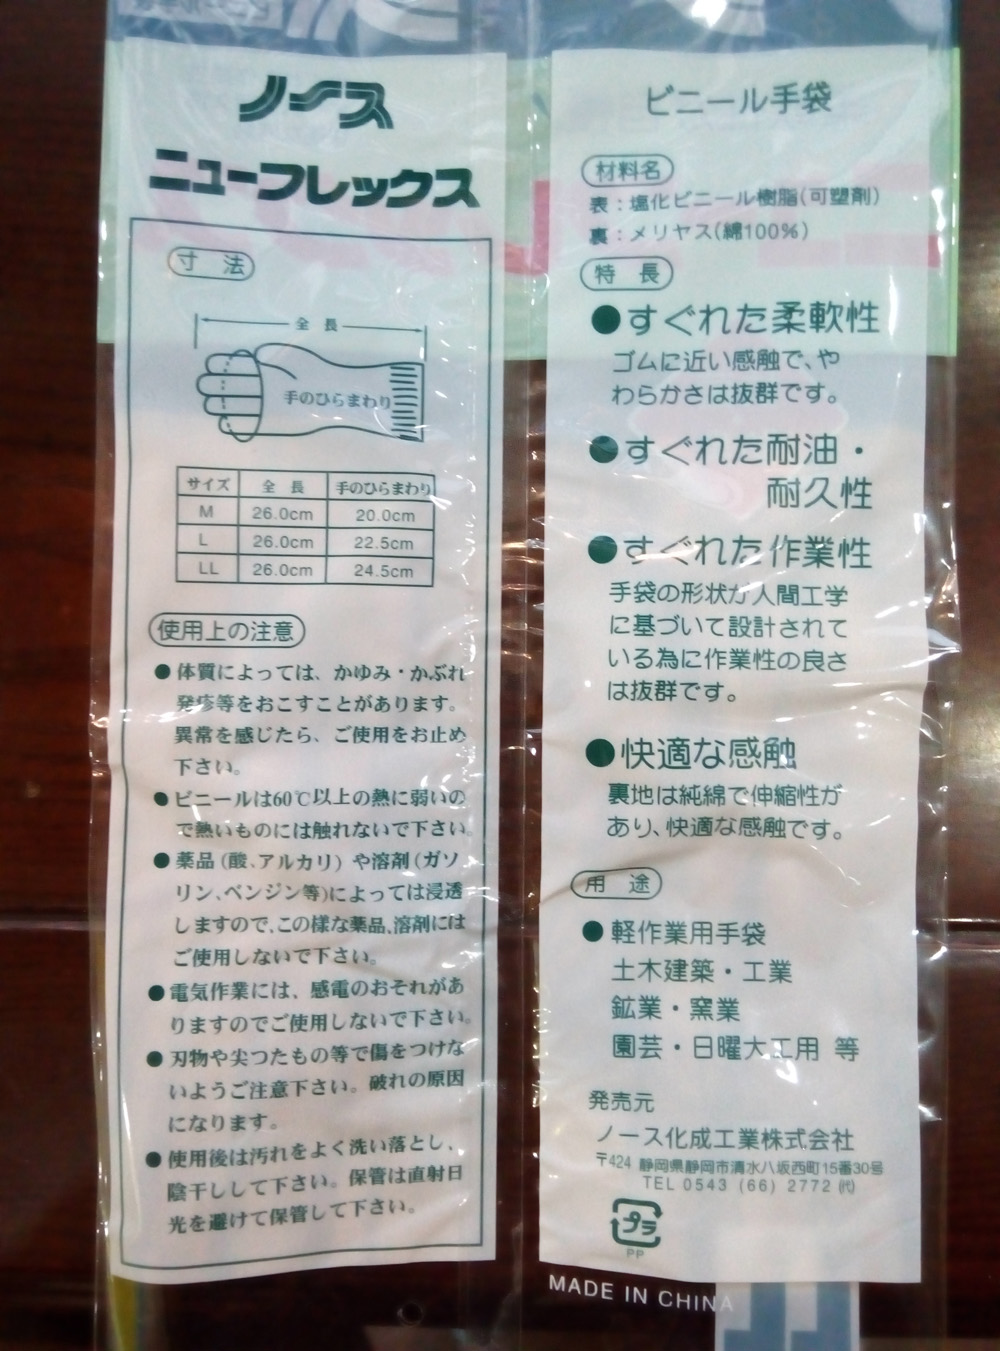 ノース
ニューフレックス
寸 法
全 長
手のひらまわり
サイズ 全 長 手のひらまわり
M 26.0cm 20.0cm
L 26.0cm 22.5cm
LL 26.0cm 24.5cm
使用上の注意
●体質によっては、かゆみ・かぶれ
発疹等をおこすことがあります。
異常を感じたら、ご使用をお止め
下さい。
●ビニールは60℃以上の熱に弱いの
で熱いものには触れないで下さい。
●薬品(酸、アルカリ)や溶剤(ガソ
リン、ベンジン等)によっては浸透
しますので、この様な薬品、溶剤には
ご使用しないで下さい。
●電気作業には、感電のおそれがあ
りますのでご使用しないで下さい。
●刃物や尖つたもの等で傷をつけな
いようご注意下さい。破れの原因
になります。
●使用後は汚れをよく洗い落とし、
陰干しして下さい。保管は直射日
光を避けて保管して下さい。
ビニール手袋
材料名
表:塩化ビニール樹脂(可塑剤)
裏:メリヤス(綿100%)
特 長
●すぐれた柔軟性
ゴムに近い感触で、や
わらかさは抜群です。
●すぐれた耐油・
耐久性
●すぐれた作業性
手袋の形状が人間工学
に基づいて設計されて
いる為に作業性の良さ
は抜群です。
●快適な感触
裏地は純綿で伸縮性が
あり、快適な感触です。
用 途
●軽作業用手袋
土木建築・工業
鉱業・窯業
園芸・日曜大工用 等
発売元
ノース化成工業株式会社
〒424 静岡県静岡市清水八坂西町15番30号
TEL 0543 (66) 2772 ㈹
プラ
PP
MADE IN CHINA